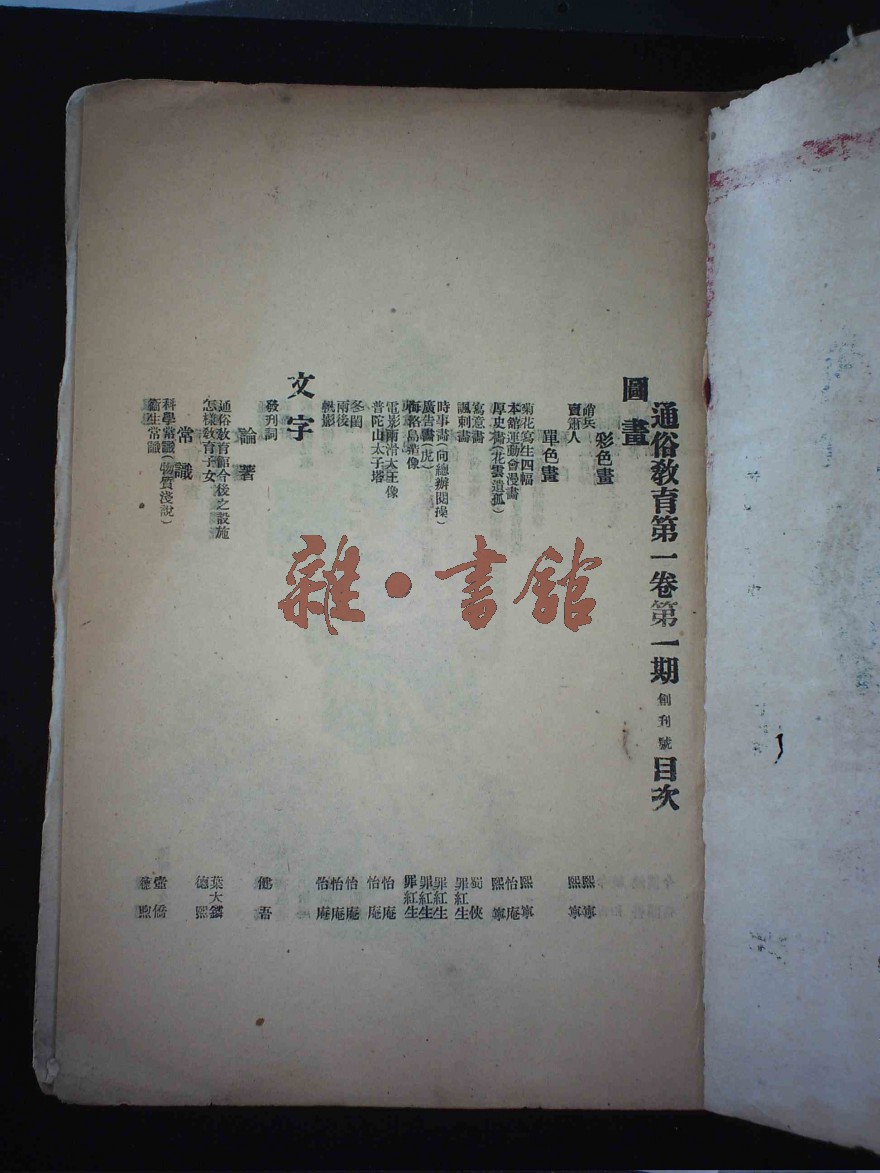 通俗教育第一卷第一期 創刊號 目次
圖畫
彩色畫
哨兵 熙寧
賣肅人 熙寧
單色畫
菊花寫生四幅 熙寧
本館運動會漫畫 怡庵
歷史畫(花雲遺孤) 熙寧
寫意畫 蜀俠
諷刺畫 罪紅生
時事畫(向總辦閱操) 罪紅生
廣告畫(虎) 罪紅生
海路島造像 罪紅生
電影兩滑大王像 怡庵
普陀山太子塔 怡庵
冬閨 怡庵
雨後 怡庵
帆影 怡庵
文字
發刊詞 健吾
論著
通俗教育館今後之設施 葉大鏘
怎樣教育子女 德熙
常識
科學常識(物質淺說) 壺僑
衞生常識
雜·書舘